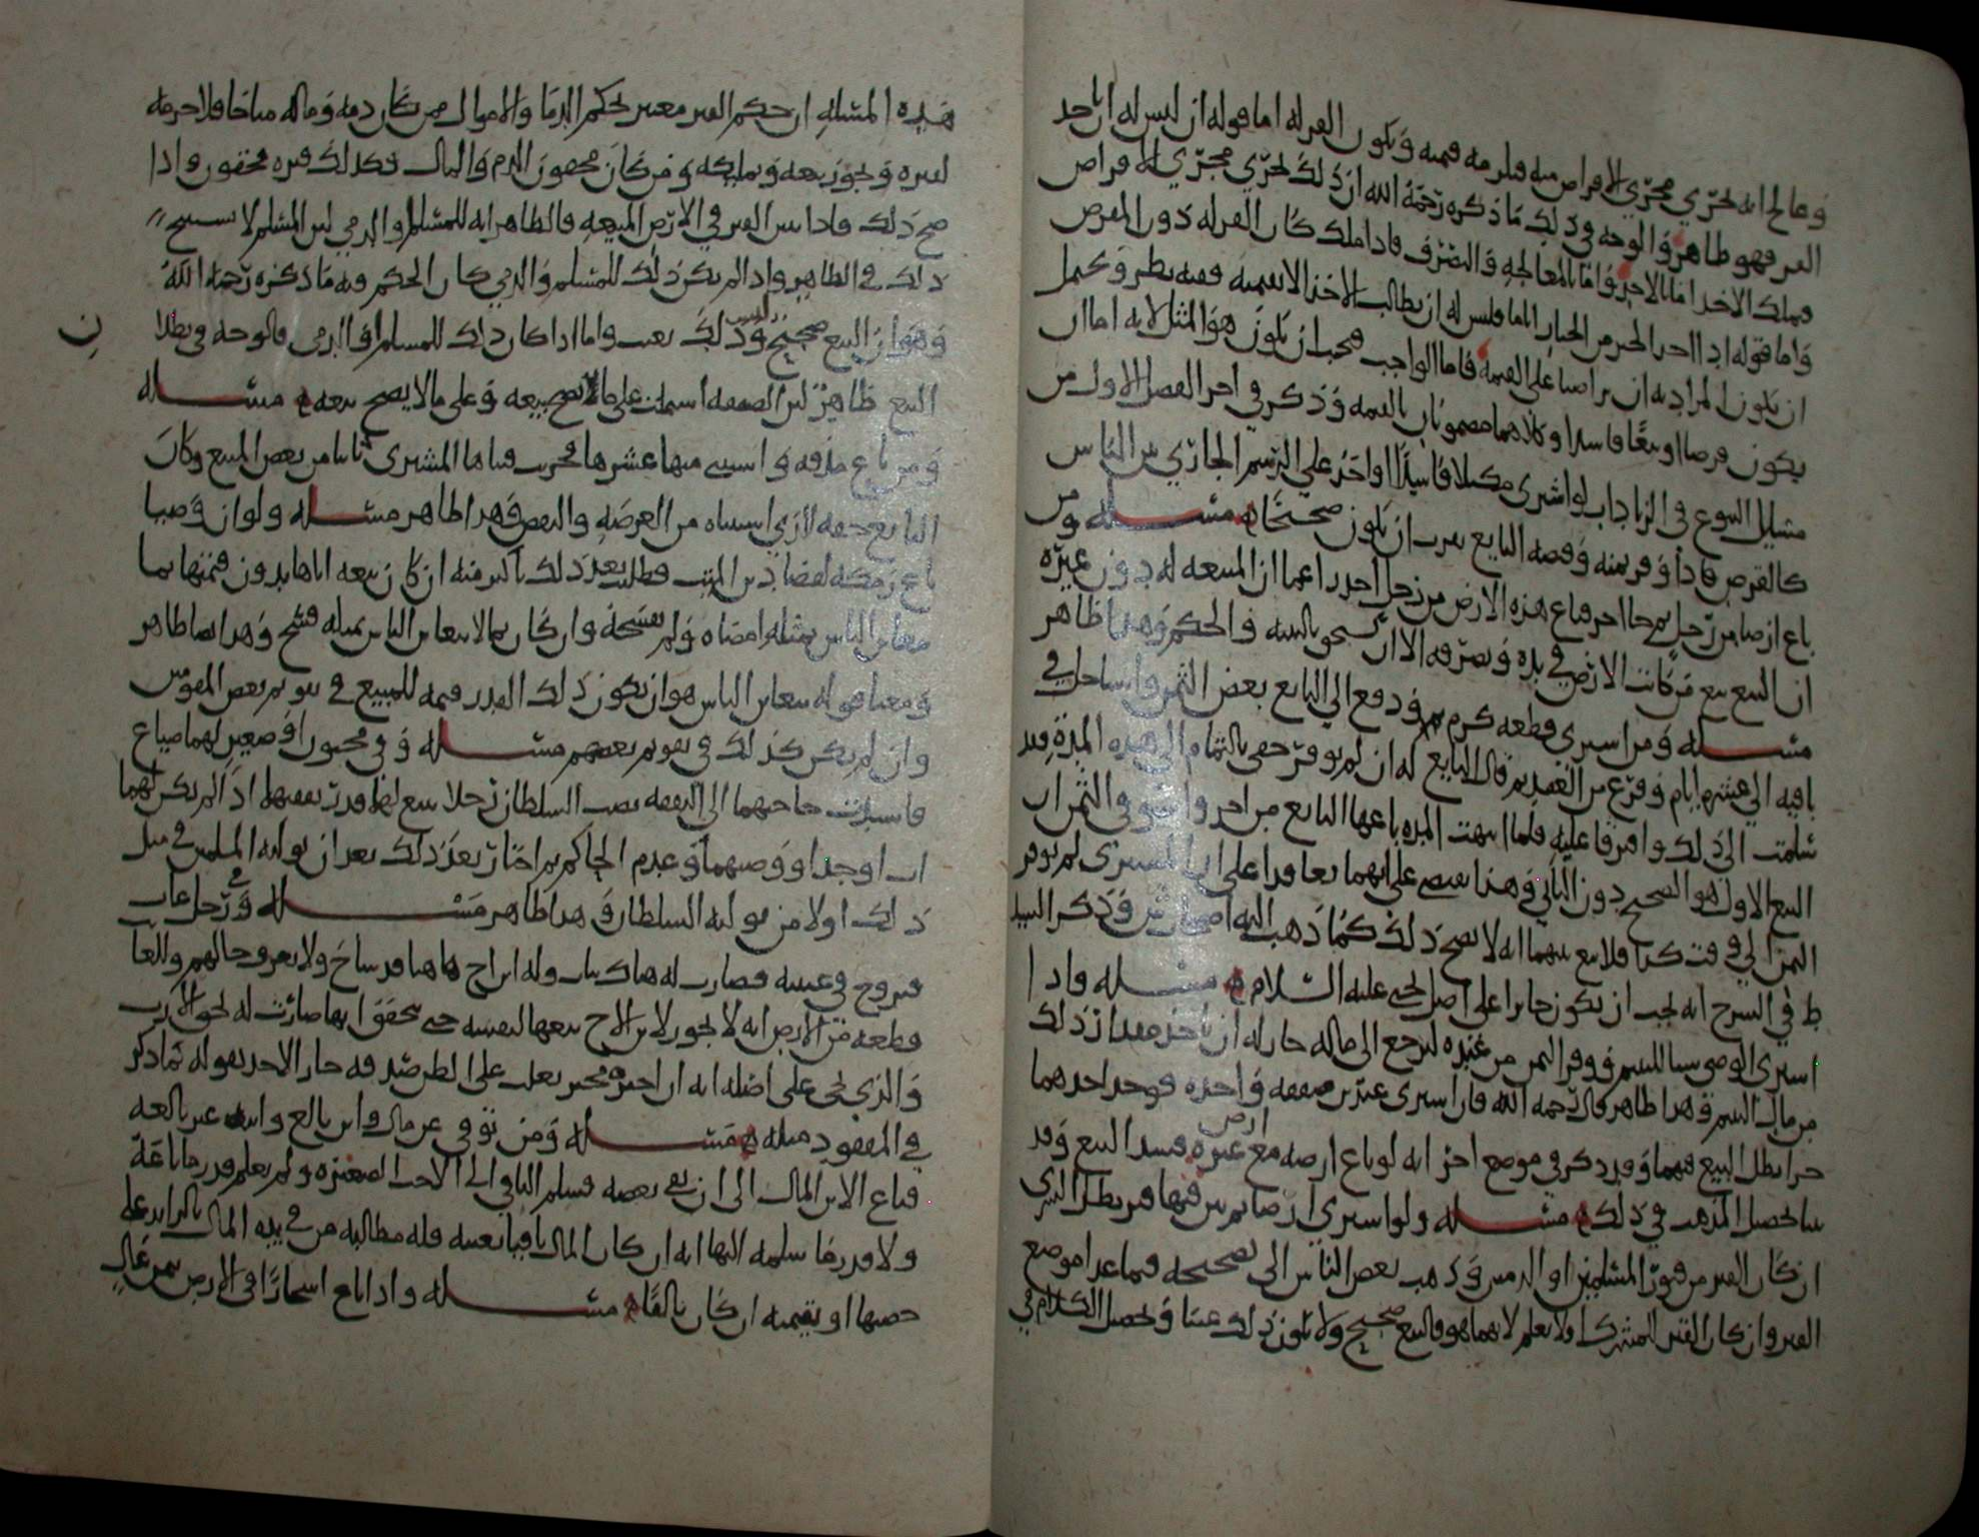 وعالج انه يجري مجرى الاقراض منه فلزمه قيمته ويكون الغرله اما قوله ان ليس له ان ياخذ
الغرر فهو ظاهر والوجه في ذلك ما ذكره رحمة الله ان ذلك يجري مجرى الاقراض
فملك الاخذ اما بالاخذ واما بالمعالجة والتصرف فاذا ملك كان الغرله دون المقرض
واما قوله اذا اخذ الخبز من الخباز اياما فليس له ان يطالب الاخذ الا بقيمته ففيه نظر ويحتمل
ان يكون المراد به ان تراضيا على القيمة فاما الواجب فيجب ان يكون هو المثل لانه اما ان
يكون قرضا او بيعا فاسدا وكلاهما مضمونان بالقيمة وذكر في اخر الفصل الاول من
مسائل البيوع في الزيادات لو اشترى مكيلا فاسدا او اخذ على الرسم الجاري بين الناس
كالقرض فاذا وفر ثمنه وقبضه البايع يجب ان يكون صحيحا مسئلة ومن
باع ارضا من رجل ثم جا اخر فباع هذه الارض من رجل اخر زاعما ان المبيعة له دون غيره
ان البيع بيع من كانت الارض في يده وتصرفه الا ان يستحق بالبينة والحكم وهذا ظاهر
مسئلة ومن اشترى قطعة كرم ودفع الى البايع بعض الثمن واستاجل في
باقيه الى عشرة ايام وفرغ من العقد ثم قال البايع له ان لم توفر حقي بالتمام الى هذه المدة فقد
سلمت الى ذلك وافترقا عليه فلما انتهت المدة باعها البايع من اخر واستوفى الثمن ان
البيع الاول هو الصحيح دون الثاني وهذا يقتضي على انهما تعاقدا على ان المشتري لم يوفر
الثمن الى وقت كذا فلا بيع بينهما انه لا يصح ذلك كما ذهب اليه اصحاب وذكر السيد
ط في الشرح انه يجب ان يكون جايزا على اصل يحيى عليه السلام مسئلة واذا
اشترى الوصي شيا لليتيم ووفر الثمن من عنده ليرجع الى ماله جاز له ان ياخذ مقدار ذلك
من مال اليتيم وهذا ظاهر قال رحمه الله فان اشترى عبدين صفقة واحدة فوجد احدهما
حرا بطل البيع فيهما وقد ذكر في موضع اخر انه لو باع ارضه مع ارض غيره فسد البيع وقد
بينا تحصيل المذهب في ذلك مسئلة ولو اشترى ارضا ثم تبين فيها قبر بطل الشرى
ان كان القبر من قبور المسلمين او الذميين وذهب بعض الناس الى تصحيحه فيما عدا موضع
القبر وان كان القبر لمشرك او لا يعلم لايهما هو فالبيع صحيح ولا يكون ذلك عيبا وتحصيل الكلام في
هذه المسئلة ان حكم القبر معتبر بحكم الدما والاموال فمن كان دمه وماله مباحا فلا حرمة
لقبره ويجوز بيعه وتمليكه ومن كان محقون الدم والمال فكذلك قبره محقون واذا
صح ذلك فاذا تبين القبر في الارض المبيعة فالظاهر انه للمسلم او الذمي لبس المسلم لا
ذلك في الظاهر واذا لم يكن ذلك للمسلم والذمي كان الحكم فيه ما ذكره رحمه الله
وهو ان البيع صحيح وذلك ليس بعيب واما اذا كان ذلك للمسلم او الذمي فالوجه في بطلان
البيع ظاهر لان الصفقة اشتملت على ما يصح بيعه وعلى ما لا يصح بيعه مسئلة
ومن باع مبذره واستثنى منها عشرها فخرب فبناها المشتري ثانيا من بعض المبيع وكان
البايع حقه لازم استثناه من العرصة والنقض وهذا ظاهر مسئلة ولو ان وصيا
باع تركة لقضا دين الميت فطلب بعد ذلك باكثر منه ان كان بيعه اياها بدون قيمتها بما
يتغابن الناس بمثله امضاه ولم يفسخه وان كان بما لا يتغابن الناس بمثله فسخ وهذا ايضا ظاهر
ومعنا قوله يتغابن الناس هو ان يكون ذلك القدر قيمة للمبيع في تقويم بعض المقومين
وان لم يكن كذلك في تقويم بعضهم مسئلة وفي مجنون او صغير لهما ضياع
فاشتدت حاجتهما الى النفقة نصب السلطان رجلا يبيع لهما قدر نفقتهما اذا لم يكن لهما
اب او جد او وصيهما وعدم الحاكم ثم اختار بعد ذلك بعد ان توليه المسلمين في مثل
ذلك اولا من توليه السلطان وهذا ظاهر مسئلة وفي رجل غاب
فتزوج في غيبته فصارت له هناك بنات وله ابن اخ هاهنا قد شاخ ولا يعرف حالهم وللغايب
قطعة من الارض انه لا يجوز لابن الاخ بيعها لنفسه حتى يتحقق انها صارت له بحق الارث
والذي يجي على اصله انه ان اخبره مخبر يغلب على الظن صدقه جاز الاخذ بقوله كما ذكر
في المفقود مثله مسئلة ومن توفى عن مال وابن بالغ وابنة غير بالغة
فباع الابن المال الى ان بقي بعضه فسلم الباقي الى الاخت الصغيرة ولم يعلم قدر ما باعه
ولا قدر ما سلمه اليها انه ان كان المال باقيا بعينه فله مطالبة من في يده المال بالزايد على
حصتها او بقيمته ان كان تالفا مسئلة واذا باع اشجارا في الارض بثمن غال